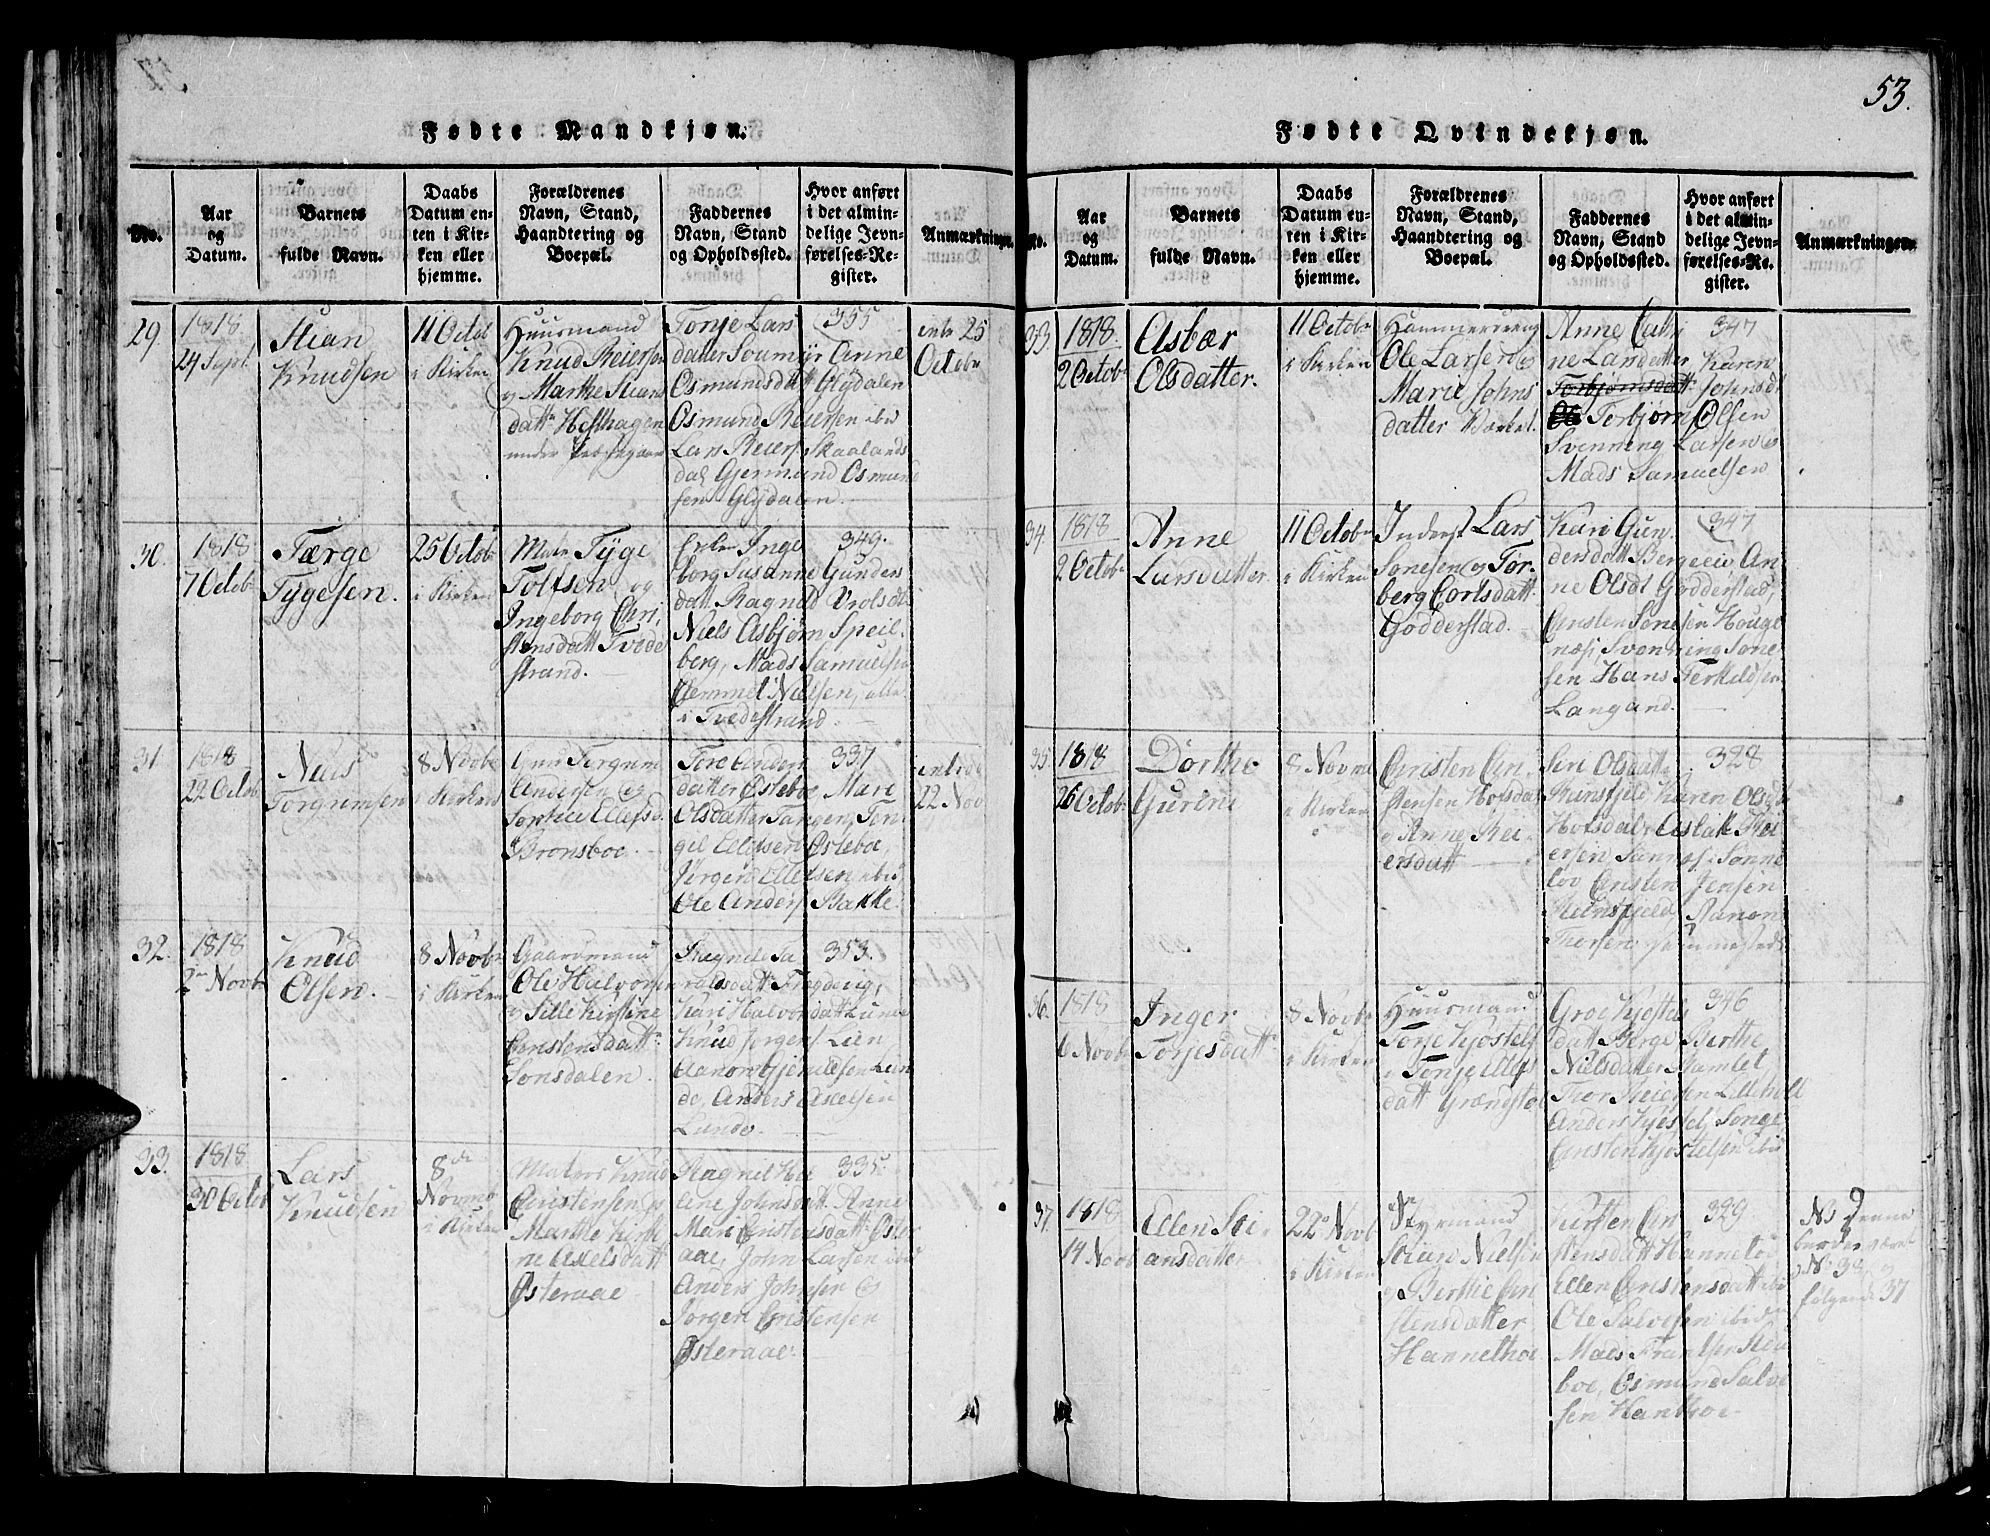 53.
Fødte Mandkjøn.
No.
Aar
og
Datum.
Barnets
fulde Navn.
Daabs
Datum en-
ten i Kir-
ken eller
hjemme.
Forældrenes
Navn, Stand,
Haandtering og
Boepæl.
Faddernes
Navn, Stand
og Opholdssted.
Hvor anført
i det almin-
delige Jevn-
førelses-Re-
gister.
Anmærkninger.
29.
1818
29 Sept.
Stian
Knudsen
11 Octob
i Kirken
Huusmand
Knud Reiersen
og Marthe Stians
datt Hesthagen
under
Tonje Lars
datter Anne
Osmundsdatt Glydalen
Osmund Reiersen ibid
Lars Reiers Skaalands
dal Gjermund Osmund
sen Glydalen
355
25
Octobr
30.
1818
7 Octob
Færge
Tygesen.
25 Octob
i Kirken
Tyge
Tolfsen og
Ingeborg Chri
stensdatt Tvede
strand.
Inge
borg Susanne Gunders
datt. Ragnild
Niels Asbjørn Speil-
berg, Mads Samuelsen
Niels­sen, alle
i Tvedestrand.
349.
31.
1818
22 Octob
Niels
Torgrimsen
8 Novbr
i Kirken
Andersen og
Ellefsd
Bronsboe.
Tore Anders
datter Østeboe Mare
Olsdatter Tangen, Ten
gil Ellefsen Østeboe,
Jørgen Ellefsen ibid
Ole Anders Bakke.
337
22 Nov
32.
1818
2 Novb
Knud
Olsen.
8 Novbr
i Kirken
Gaardmand
Ole Halvorsen
og Sille Kirstine
Christensdatt
Sonsdalen.
Ragnild Ta
raldsdatt
Kari Halvorsdatt Lunde
Knud Jørgens. Lien
Aanon
de, Anders Axelsen
Lunde.
353.
33.
1818
30 Octob
Lars
Knudsen
8de
Novmb
i Kirken
Matros Knud
Christensen og
Marthe Kirsti
ne Axelsdatt
Østeraae
Ragnil He
lene Johnsdatt. Anne
Mari Christensdatt Øster
aae, John Larsen ibid
Anders Johnsen og
Jørgen Christensen
Østeraae.
335.
Fødte Qvindekjøn.
No.
Aar
og
Datum.
Barnets
fulde Navn.
Daabs
Datum en-
ten i Kir-
ken eller
hjemme.
Forældrenes
Navn, Stand,
Haandtering og
Boepæl.
Faddernes
Navn, Stand
og Opholdssted.
Hvor anført
i det almin-
delige Jevn-
førelses-Re-
gister.
Anmærkninger.
33.
1818.
2 Octobr
Asbær
Olsdatter.
11 Octobr
i Kirken
Hammerdreng
Ole Larsen og
Marie Johns
datter Værket.
Anne Cathri
ne Larsdatter Karen
Torbjørnsdatt Johnsd
Torbjørn Olsen
Svenning Larsen og
Mads Samuelsen
347
34.
1818
2 Octobr
Anne
Larsdatter
11 Octobr
i Kirken
Inderst Lars
Sonesen og Tor
berg Carlsdatt.
Godderstad.
Kari Gun
dersdatt Bergeeie An
ne Olsdt Godderstad,
Christen Sonesen Houge
næs, Svenning Sone
sen Hans Terkildsen
Langand.
347
35.
1818
26 Octobr
Dorthe
Gurine
8 Novmb
i Kirken
Christen Chri
stensen Hofsdal
og Anne Rei
ersdatt
Siri Olsdatt
Karen Olsd
Hofsdal, Aslak Rei
ersen Sannes, Sonne
løv Christen Jensen
Aanon
Thorsen
328
36.
1818
6 Novbr
Inger
Torjesdatt
8 Novbr
i Kirken
Huusmand
Torje Kjøstels
og Tonje Ellefs
datt Grændstøl
Groe Kjøstels
datt Berge, Berthe
Nielsdatter Hamlet,
Thor Reiersen Lilleholt
Anders Kjøstels, Songe
Christen Kjøstelsen ibid
346
37.
1818
14 Novb
Ellen Sti
ansdatter
22de Novb
i Kirken
Styrmand
Stian Nielsen
og Berthe Chri
stensdatter
Hannethoe
Kirsten Chri
stensdatt Hannetoe
Ellen Christensdatt ibid
Ole Salvesen ibid
Mads Frantsen
boe, Osmund Salve
sen Hanthoe
329
NB denne
burde været
No 38, og
følgende 37